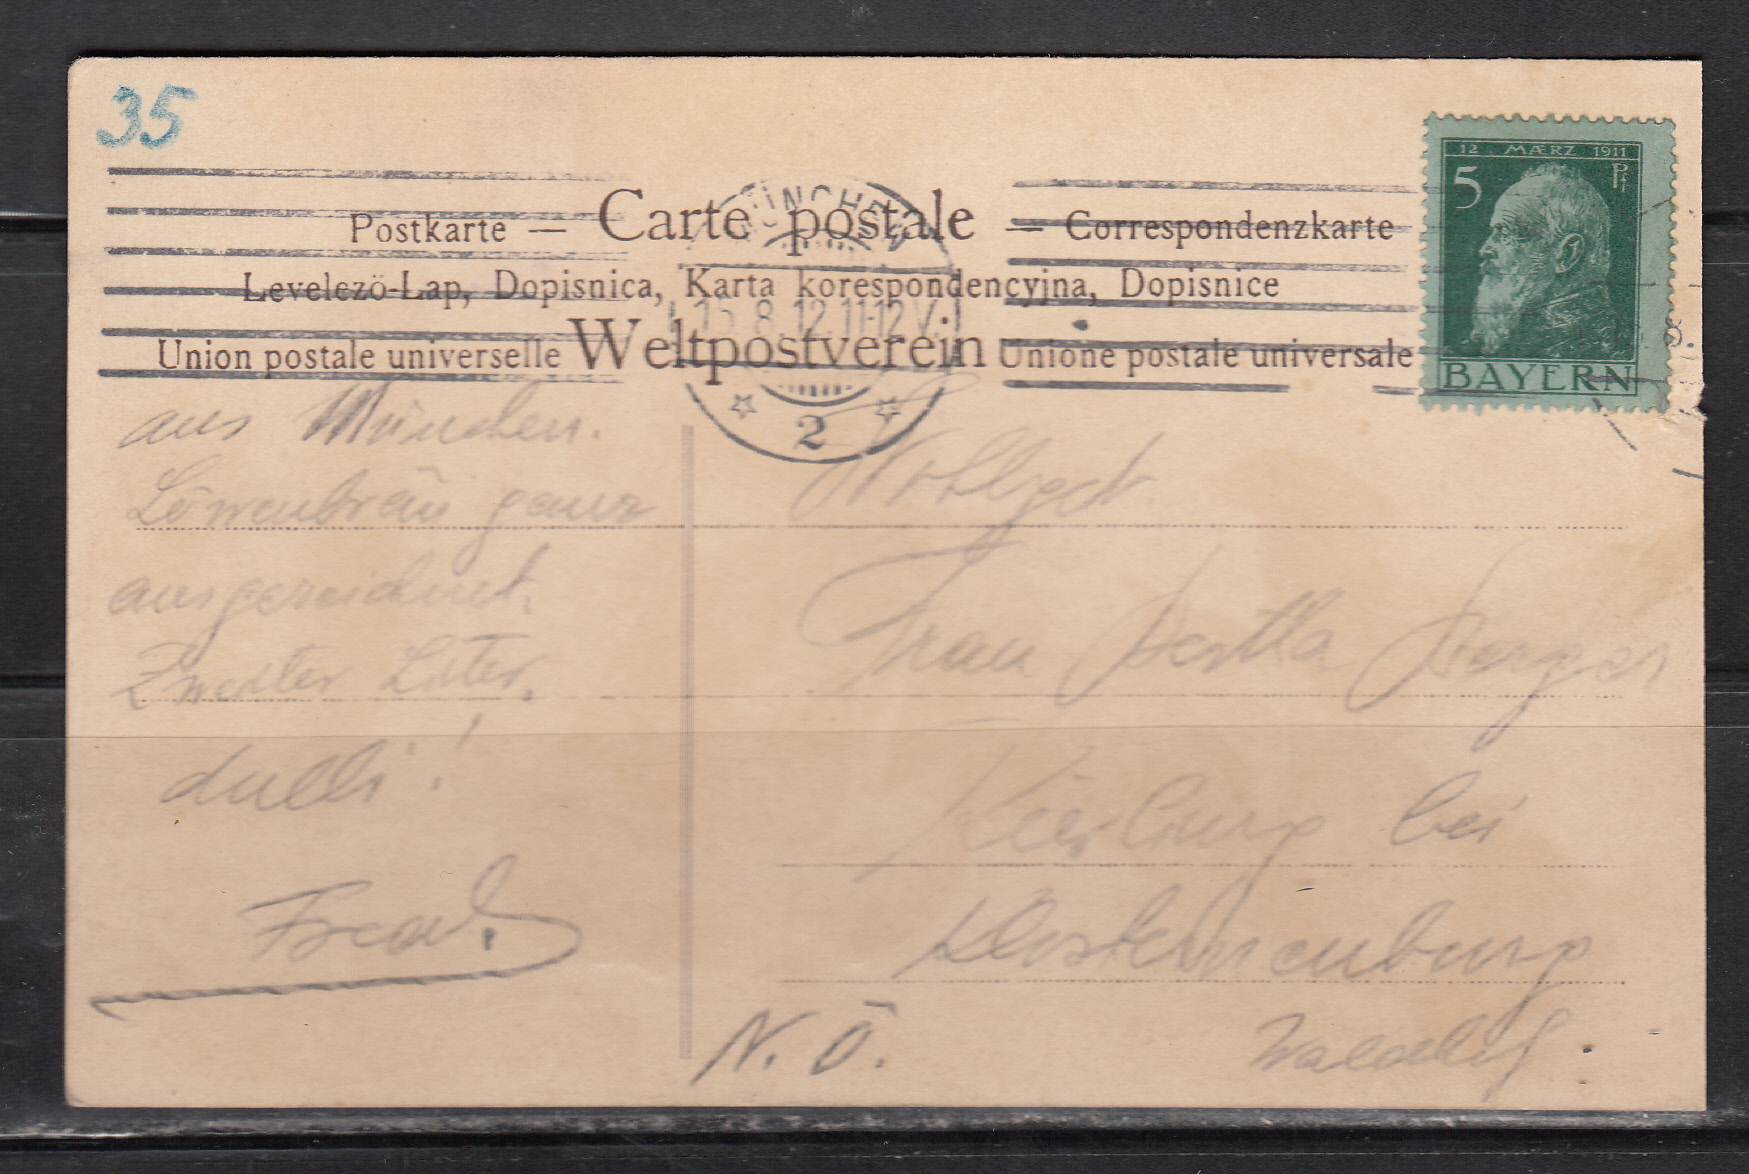 35
12 MÆRZ 1911
5 Pf
BAYERN
MÜNCHEN
Postkarte — Carte postale — Correspondenzkarte
Levelezö-Lap, Dopisnica, Karta korespondencyjna, Dopisnice
8.12.11-12V.
Union postale universelle Weltpostverein Unione postale universale
2
aus München.
Löwenbräu ganz
ausgezeichnet.
Zweiter Liter.
dulli!
Fred.
Wohlgeb.
Frau Bertha Berger
Kierling bei
Klosterneuburg
N. Ö.